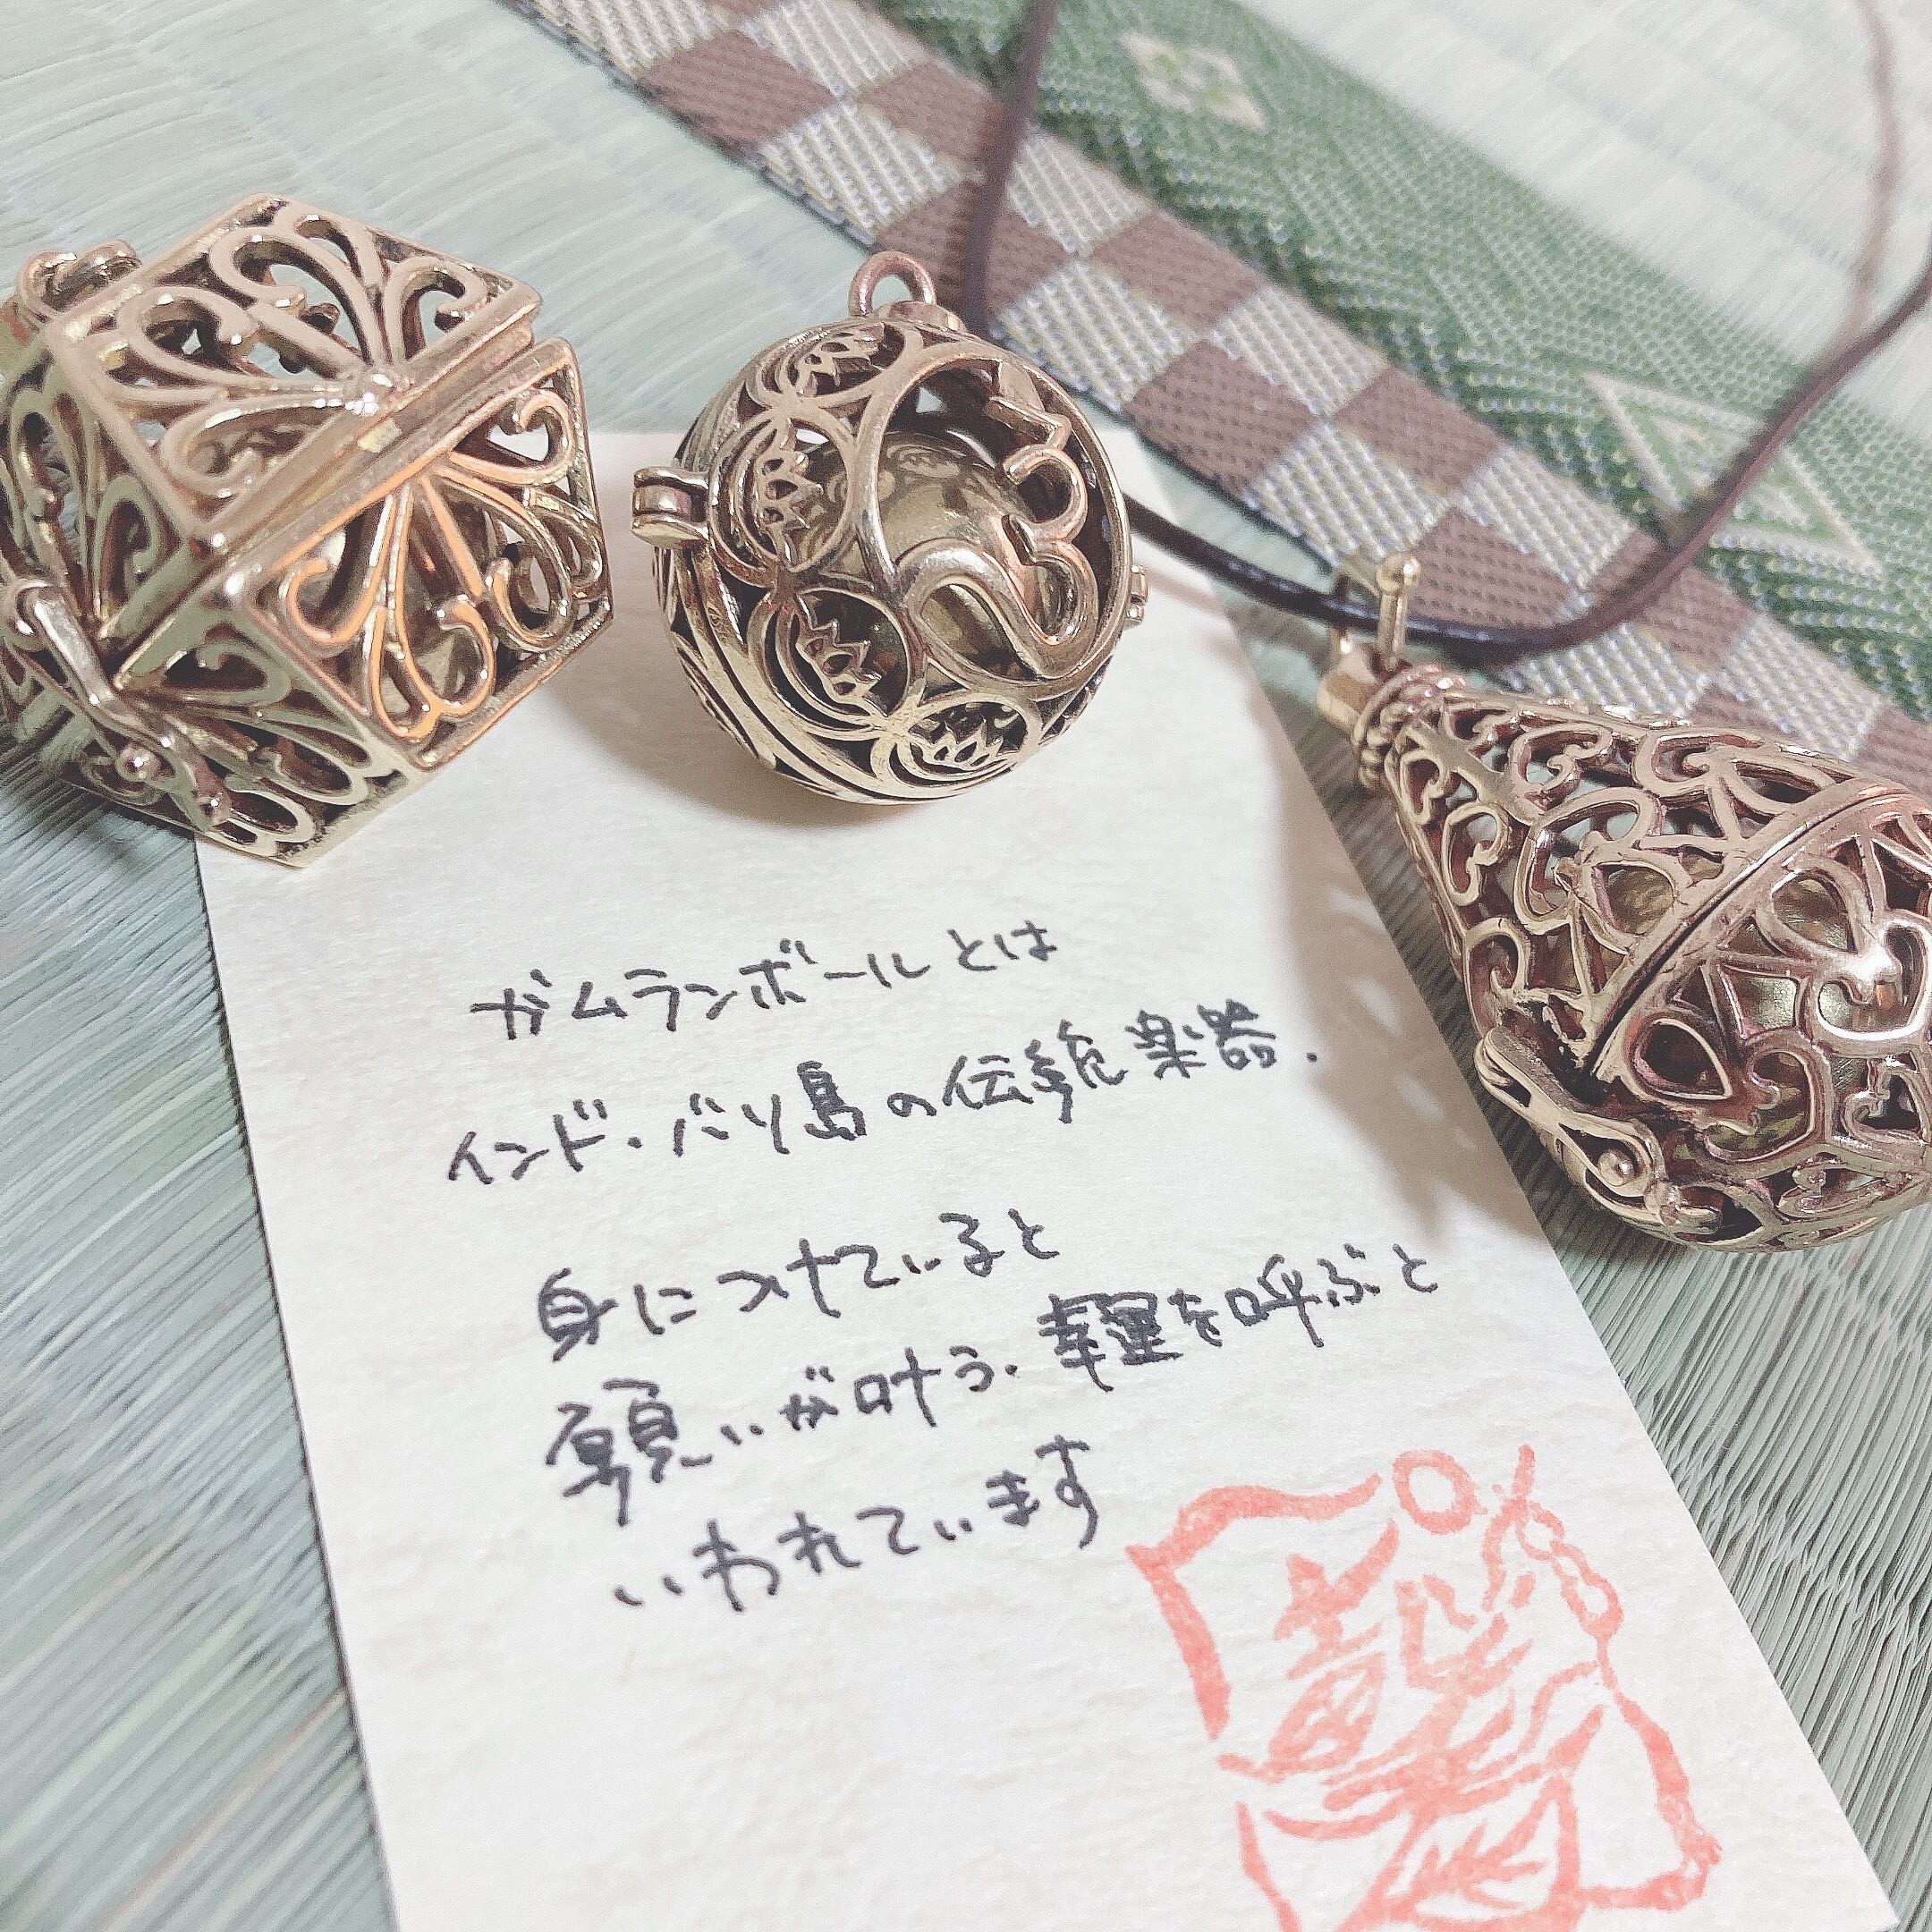 ガムランボールとは
インド・バリ島の伝統楽器.
身につけていると
願いが叶う.幸運を呼ぶと
いわれています